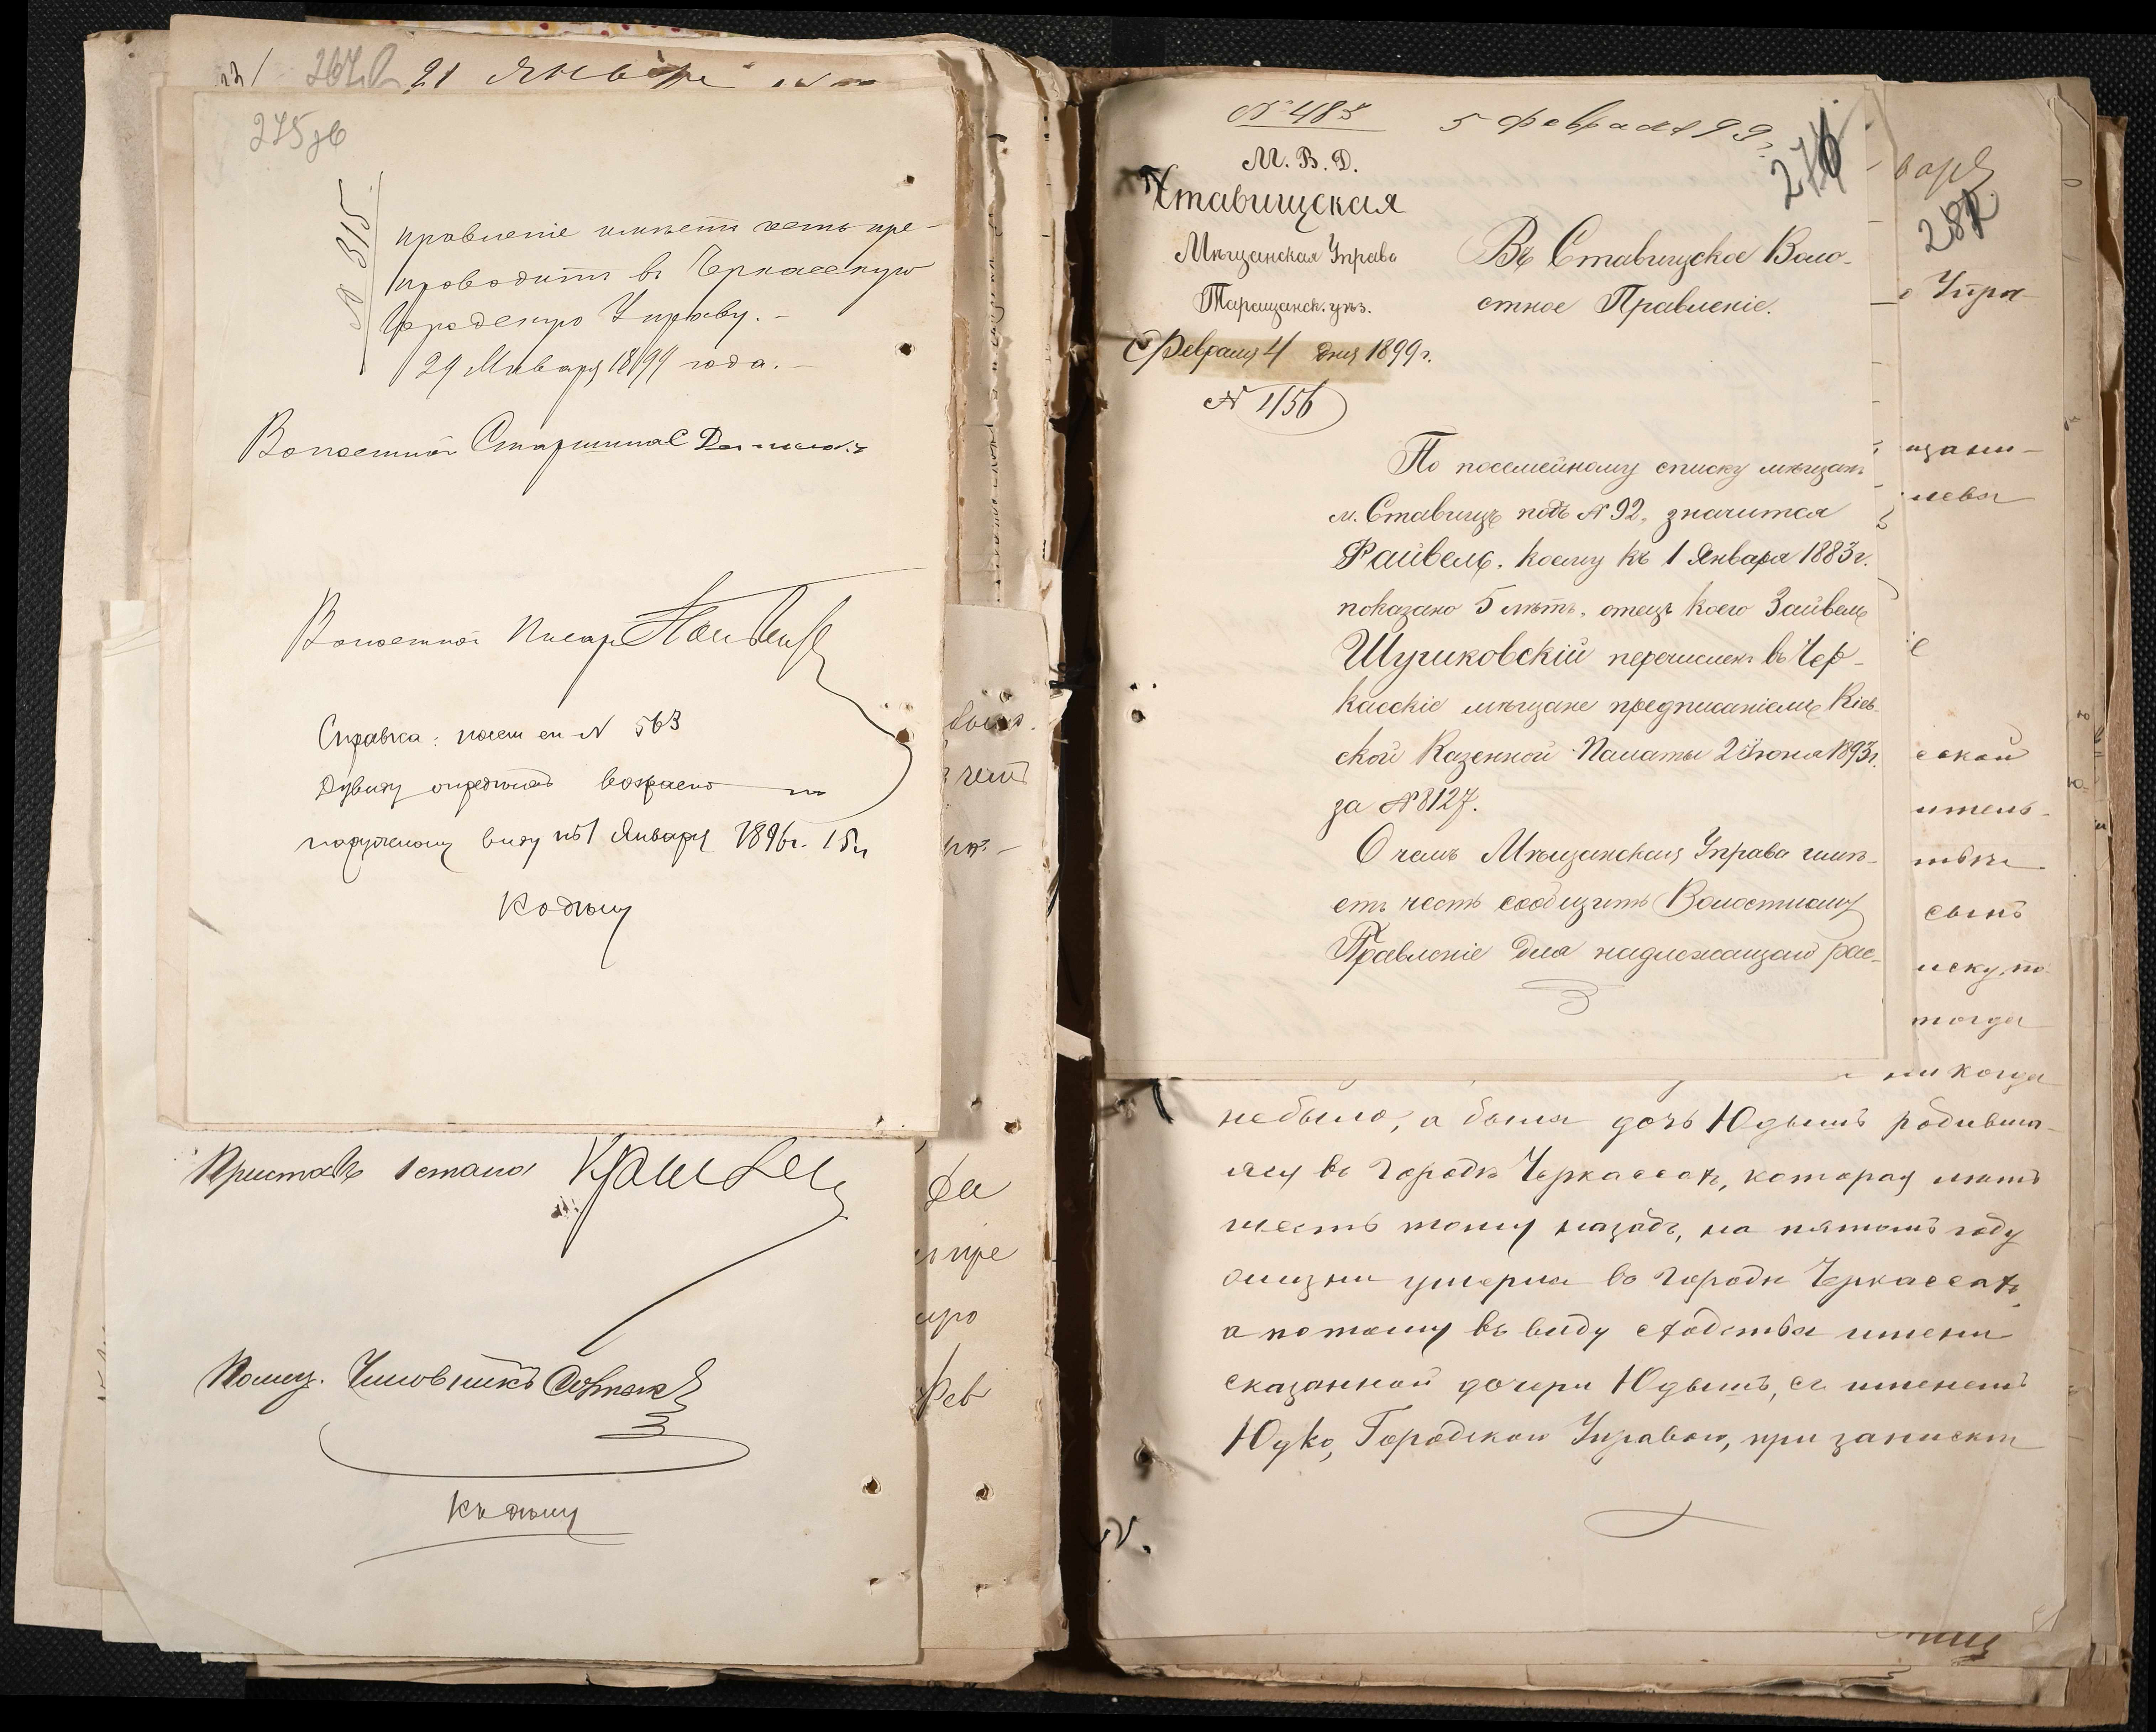 21 Января
275 об
№ 315
правленіе имѣетъ честь пре-
проводить въ Черкасскую
Городскую Управу. -
29 Января 1899 года. -
Волостной Старшина
Волостной Писарь
Справка: посем. сп. № 563
Дувиду опредѣленъ возрастъ по
наружному виду къ 1 Января 1896 г. 15 л.
Къ дѣлу
Приставъ 1 стана
Помощ. Чиновникъ
Къ дѣлу
№ 483
5 февраля 99 г.
М. В. Д.
Ставищская
Мѣщанская Управа
Таращанск. уѣз.
Февраля 4 дня 1899 г.
№ 156
Въ Ставищское Воло-
стное Правленіе.
По посемейному списку мѣщанъ
м. Ставищъ подъ № 92, значится
Файвель, коему къ 1 Января 1883 г.
показано 5 лѣтъ, отецъ коего Зайвель
Шучиковскій перечисленъ въ Чер-
касскіе мѣщане предписаніемъ Кіев-
ской Казенной Палаты 2 Іюня 1893 г.
за № 8127.
О чемъ Мѣщанская Управа имѣ-
етъ честь сообщить Волостному
Правленіе для надлежащаго рас-
282
Упра-
щани-
сынъ
тогда
никогда
небыло, а была дочь Юдышъ родивша-
яся въ городѣ Черкассахъ, которая лѣтъ
шесть тому назадъ, на пятомъ году
жизни умерла въ городѣ Черкассахъ,
а потому въ виду сходства имени
сказанной дочери Юдышъ, съ именемъ
Юдко, Городской Управою, при запискѣ